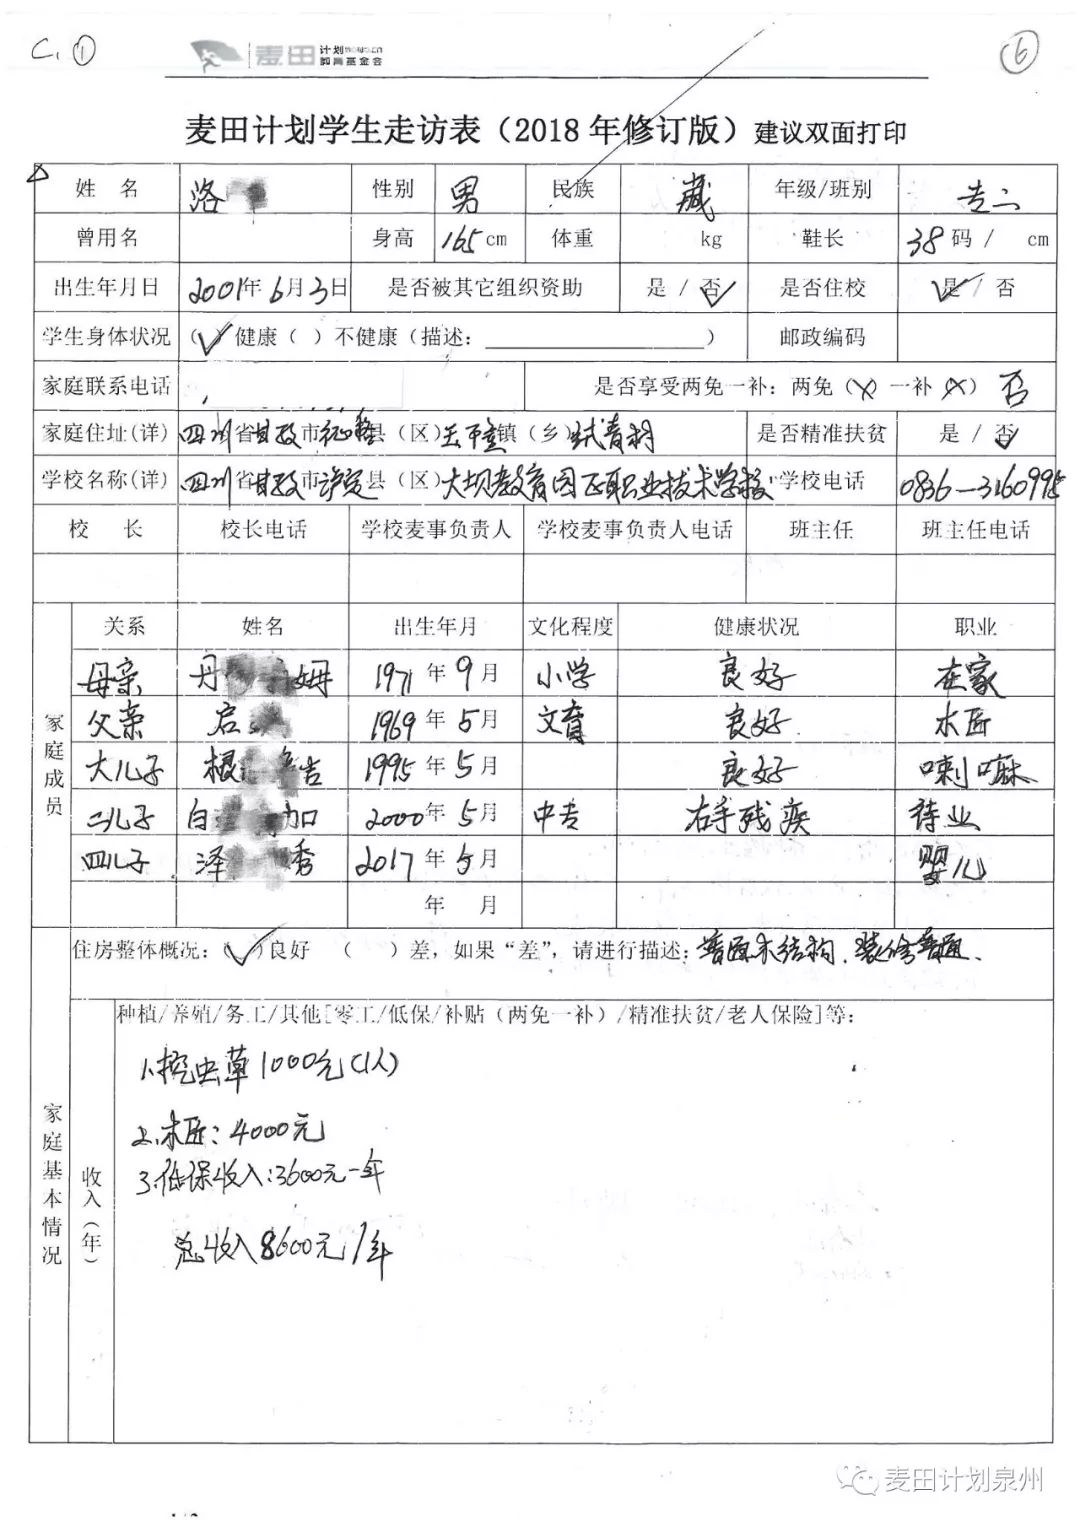 C. ①
麦田 计划
教育基金会
6
麦田计划学生走访表（2018 年修订版）建议双面打印
姓 名 洛 性别 男 民族 藏 年级/班别 专二
曾用名 身高 165 cm 体重 kg 鞋长 38 码 / cm
出生年月日 2001年 6月 3日 是否被其它组织资助 是 / 否 是否住校 是 / 否
学生身体状况 （ ）健康（ ）不健康（描述： ） 邮政编码
家庭联系电话 是否享受两免一补：两免（ ）一补（ ） 否
家庭住址(详) 四川省甘孜市 县（区） 镇（乡） 是否精准扶贫 是 / 否
学校名称(详) 四川省甘孜市泸定县（区）大坝教育园区职业技术学校 学校电话 0836-3160995
校 长 校长电话 学校麦事负责人 学校麦事负责人电话 班主任 班主任电话
家庭成员
关系 姓名 出生年月 文化程度 健康状况 职业
母亲 丹 姆 1971 年 9 月 小学 良好 在家
父亲 启 1969 年 5 月 文盲 良好 木匠
大儿子 根 吉 1995 年 5 月 良好 喇嘛
二儿子 白 加 2000 年 5 月 中专 右手残疾 待业
四儿子 泽 秀 2017 年 5 月 婴儿
年 月
家庭基本情况
住房整体概况：（ ）良好 （ ）差，如果“差”，请进行描述：普通木结构、装修普通、
收入（年）
种植/养殖/务工/其他[零工/低保/补贴（两免一补）/精准扶贫/老人保险]等：
1.挖虫草1000元(1人)
2.木匠：4000元
3.低保收入：3600元一年
总收入8600元/年
麦田计划泉州